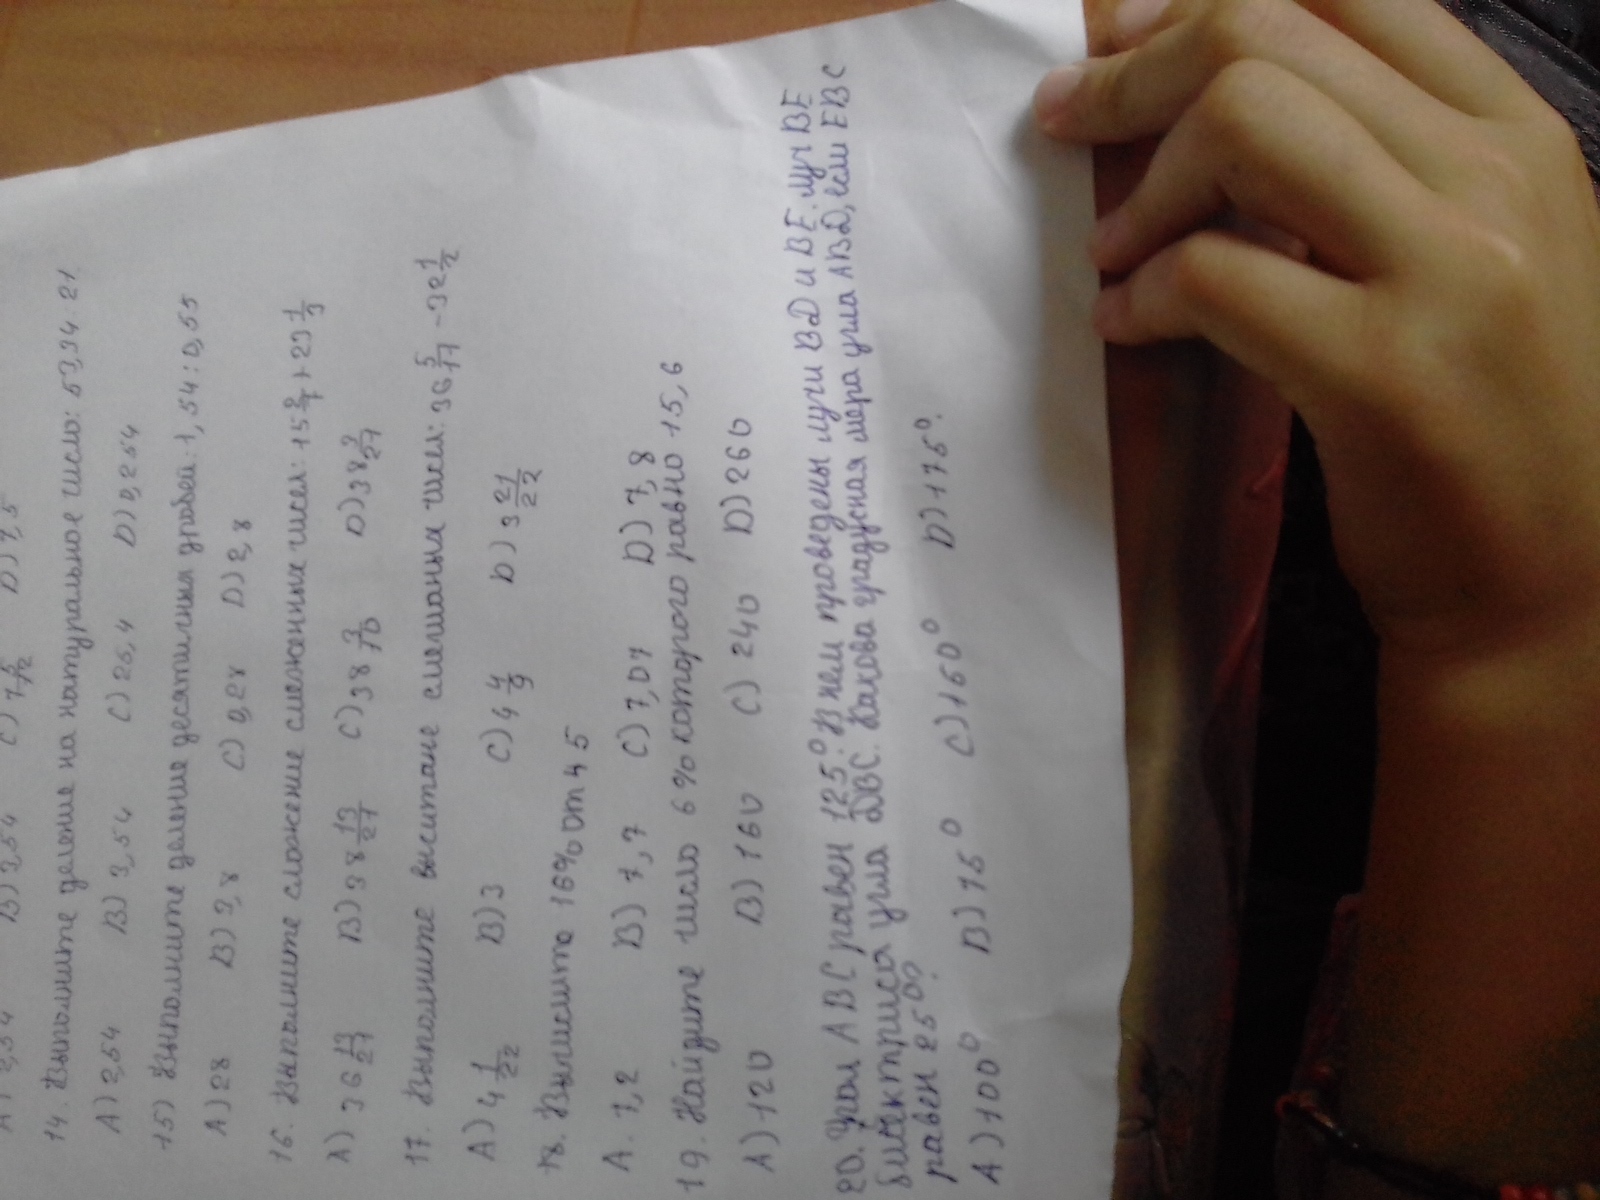 A) 2,54 B) 3,54 C) D) 7,5
14. Выполните деление на натуральное число: 53,34:21
A) 2,54 B) 3,54 C) 25,4 D) 0,254
15) Выполните деление десятичных дробей: 1,54:0,55
A) 28 B) 3,8 C) 0,28 D) 2,8
16. Выполните сложение смешенных чисел: 29 1/3
A) 36 13/21 B) 38 13/21 C) 38 3/10 D) 38
17. Выполните вычитане смешаных чисел: 36 5/11 - 32 1/2
A) 4 1/22 B) 3 C) 4 4/9 D) 3 21/22
18. Вычислите 16% от 45
A. 7,2 B) 7,7 C) 7,07 D) 7,8
19. Найдите число 6% которого равно 15,6
A) 120 B) 160 C) 240 D) 260
20. Угол ABC равен 125°. В нем проведены лучи BD и BE. луч BE
биссектриса угла DBC. Какова градусная мера угла ABD, если EBC
равен 25°?
A) 100° B) 75° C) 150° D) 175°.